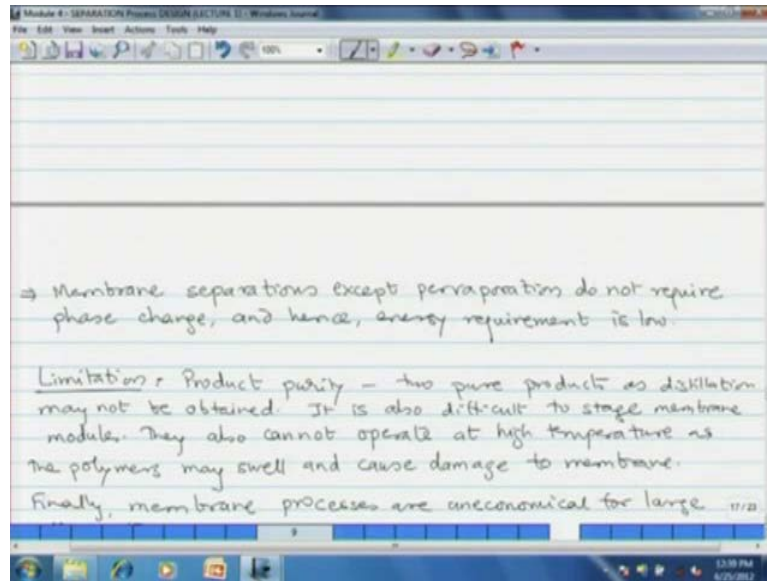 Module 4 - SEPARATION Process DESIGN (LECTURE 1) - Windows Journal
File Edit View Insert Actions Tools Help
100%
⇒ Membrane separations except pervaporation do not require
phase change, and hence, energy requirement is low.
Limitation : Product purity – two pure products as distillation
may not be obtained. It is also difficult to stage membrane
modules. They also cannot operate at high temperature as
the polymers may swell and cause damage to membrane.
Finally, membrane processes are uneconomical for large
17/23
9
12:39 PM
6/25/2012